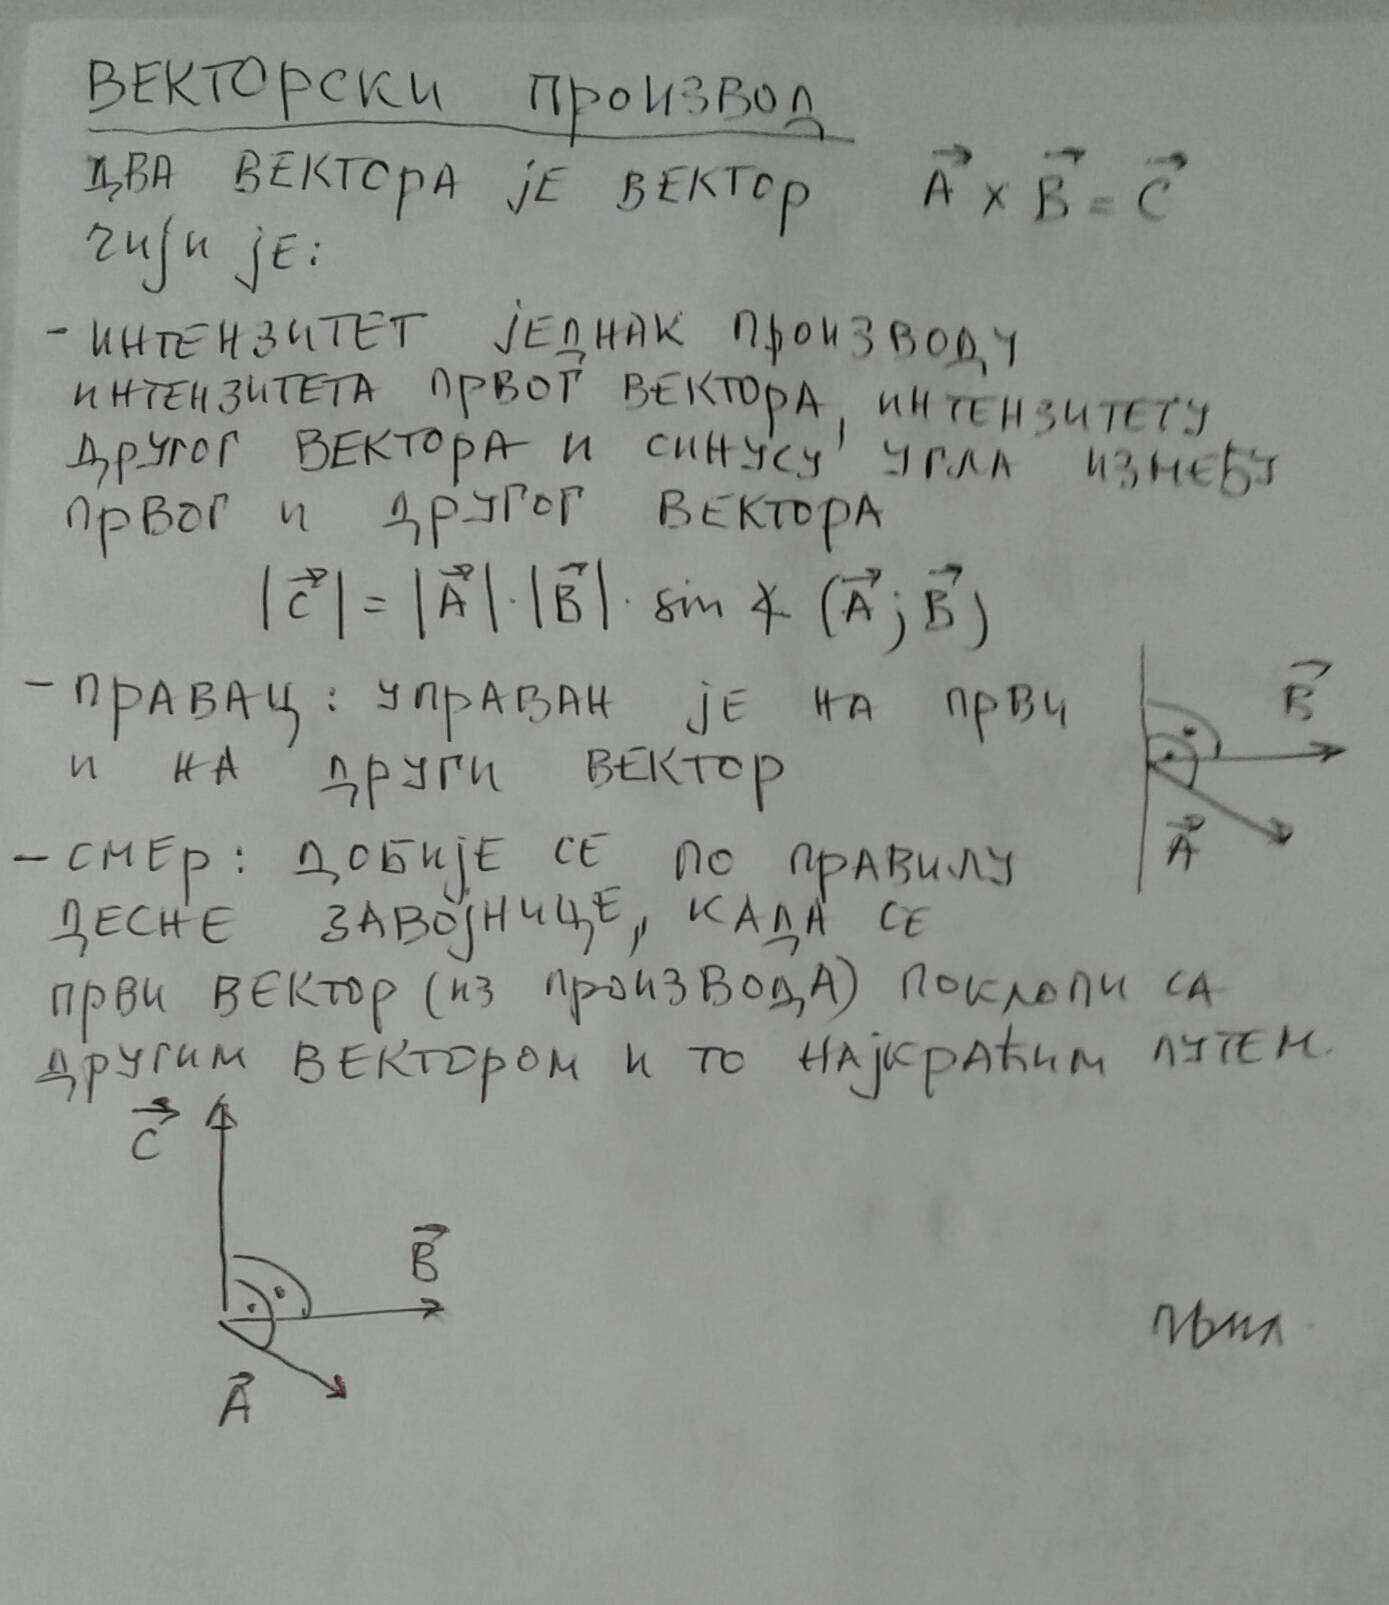 ВЕКТОРСКИ ПРОИЗВОД
ДВА ВЕКТОРА ЈЕ ВЕКТОР A⃗ × B⃗ = C⃗
ЧИЈИ ЈЕ:
- ИНТЕНЗИТЕТ ЈЕДНАК ПРОИЗВОДУ
ИНТЕНЗИТЕТА ПРВОГ ВЕКТОРА, ИНТЕНЗИТЕТУ
ДРУГОГ ВЕКТОРА И СИНУСУ УГЛА ИЗМЕЂУ
ПРВОГ И ДРУГОГ ВЕКТОРА
|C⃗| = |A⃗| · |B⃗| · sin ∢ (A⃗; B⃗)
- ПРАВАЦ: УПРАВАН ЈЕ НА ПРВИ
И НА ДРУГИ ВЕКТОР
B⃗
A⃗
- СМЕР: ДОБИЈЕ СЕ ПО ПРАВИЛУ
ДЕСНЕ ЗАВОЈНИЦЕ, КАДА СЕ
ПРВИ ВЕКТОР (ИЗ ПРОИЗВОДА) ПОКЛОПИ СА
ДРУГИМ ВЕКТОРОМ И ТО НАЈКРАЋИМ ПУТЕМ.
C⃗
B⃗
A⃗